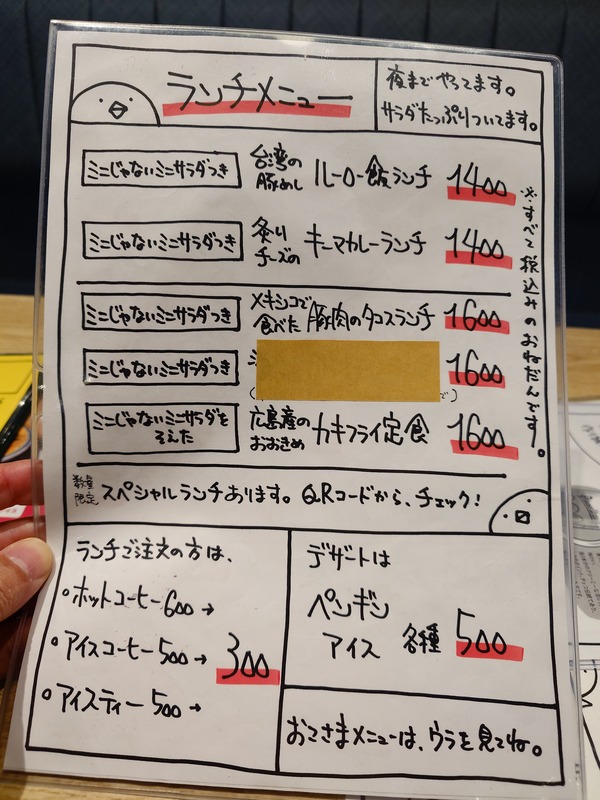 ランチメニュー
夜までやってます。
サラダたっぷりついてます。
ミニじゃないミニサラダつき
台湾の
豚めし
ルーロー飯ランチ
1400
ミニじゃないミニサラダつき
炙り
チーズの
キーマカレーランチ
1400
※すべて税込みのおねだんです。
ミニじゃないミニサラダつき
メキシコで
食べた
豚肉のタコスランチ
1600
ミニじゃないミニサラダつき
1600
ミニじゃないミニサラダを
そえた
広島産の
おおきめ
カキフライ定食
1600
数量
限定
スペシャルランチあります。QRコードから、チェック!
ランチで注文の方は、
・ホットコーヒー600→
・アイスコーヒー500→
300
・アイスティー500→
デザートは
ペンギン
アイス
各種
500
おこさまメニューは、ウラを見てね。